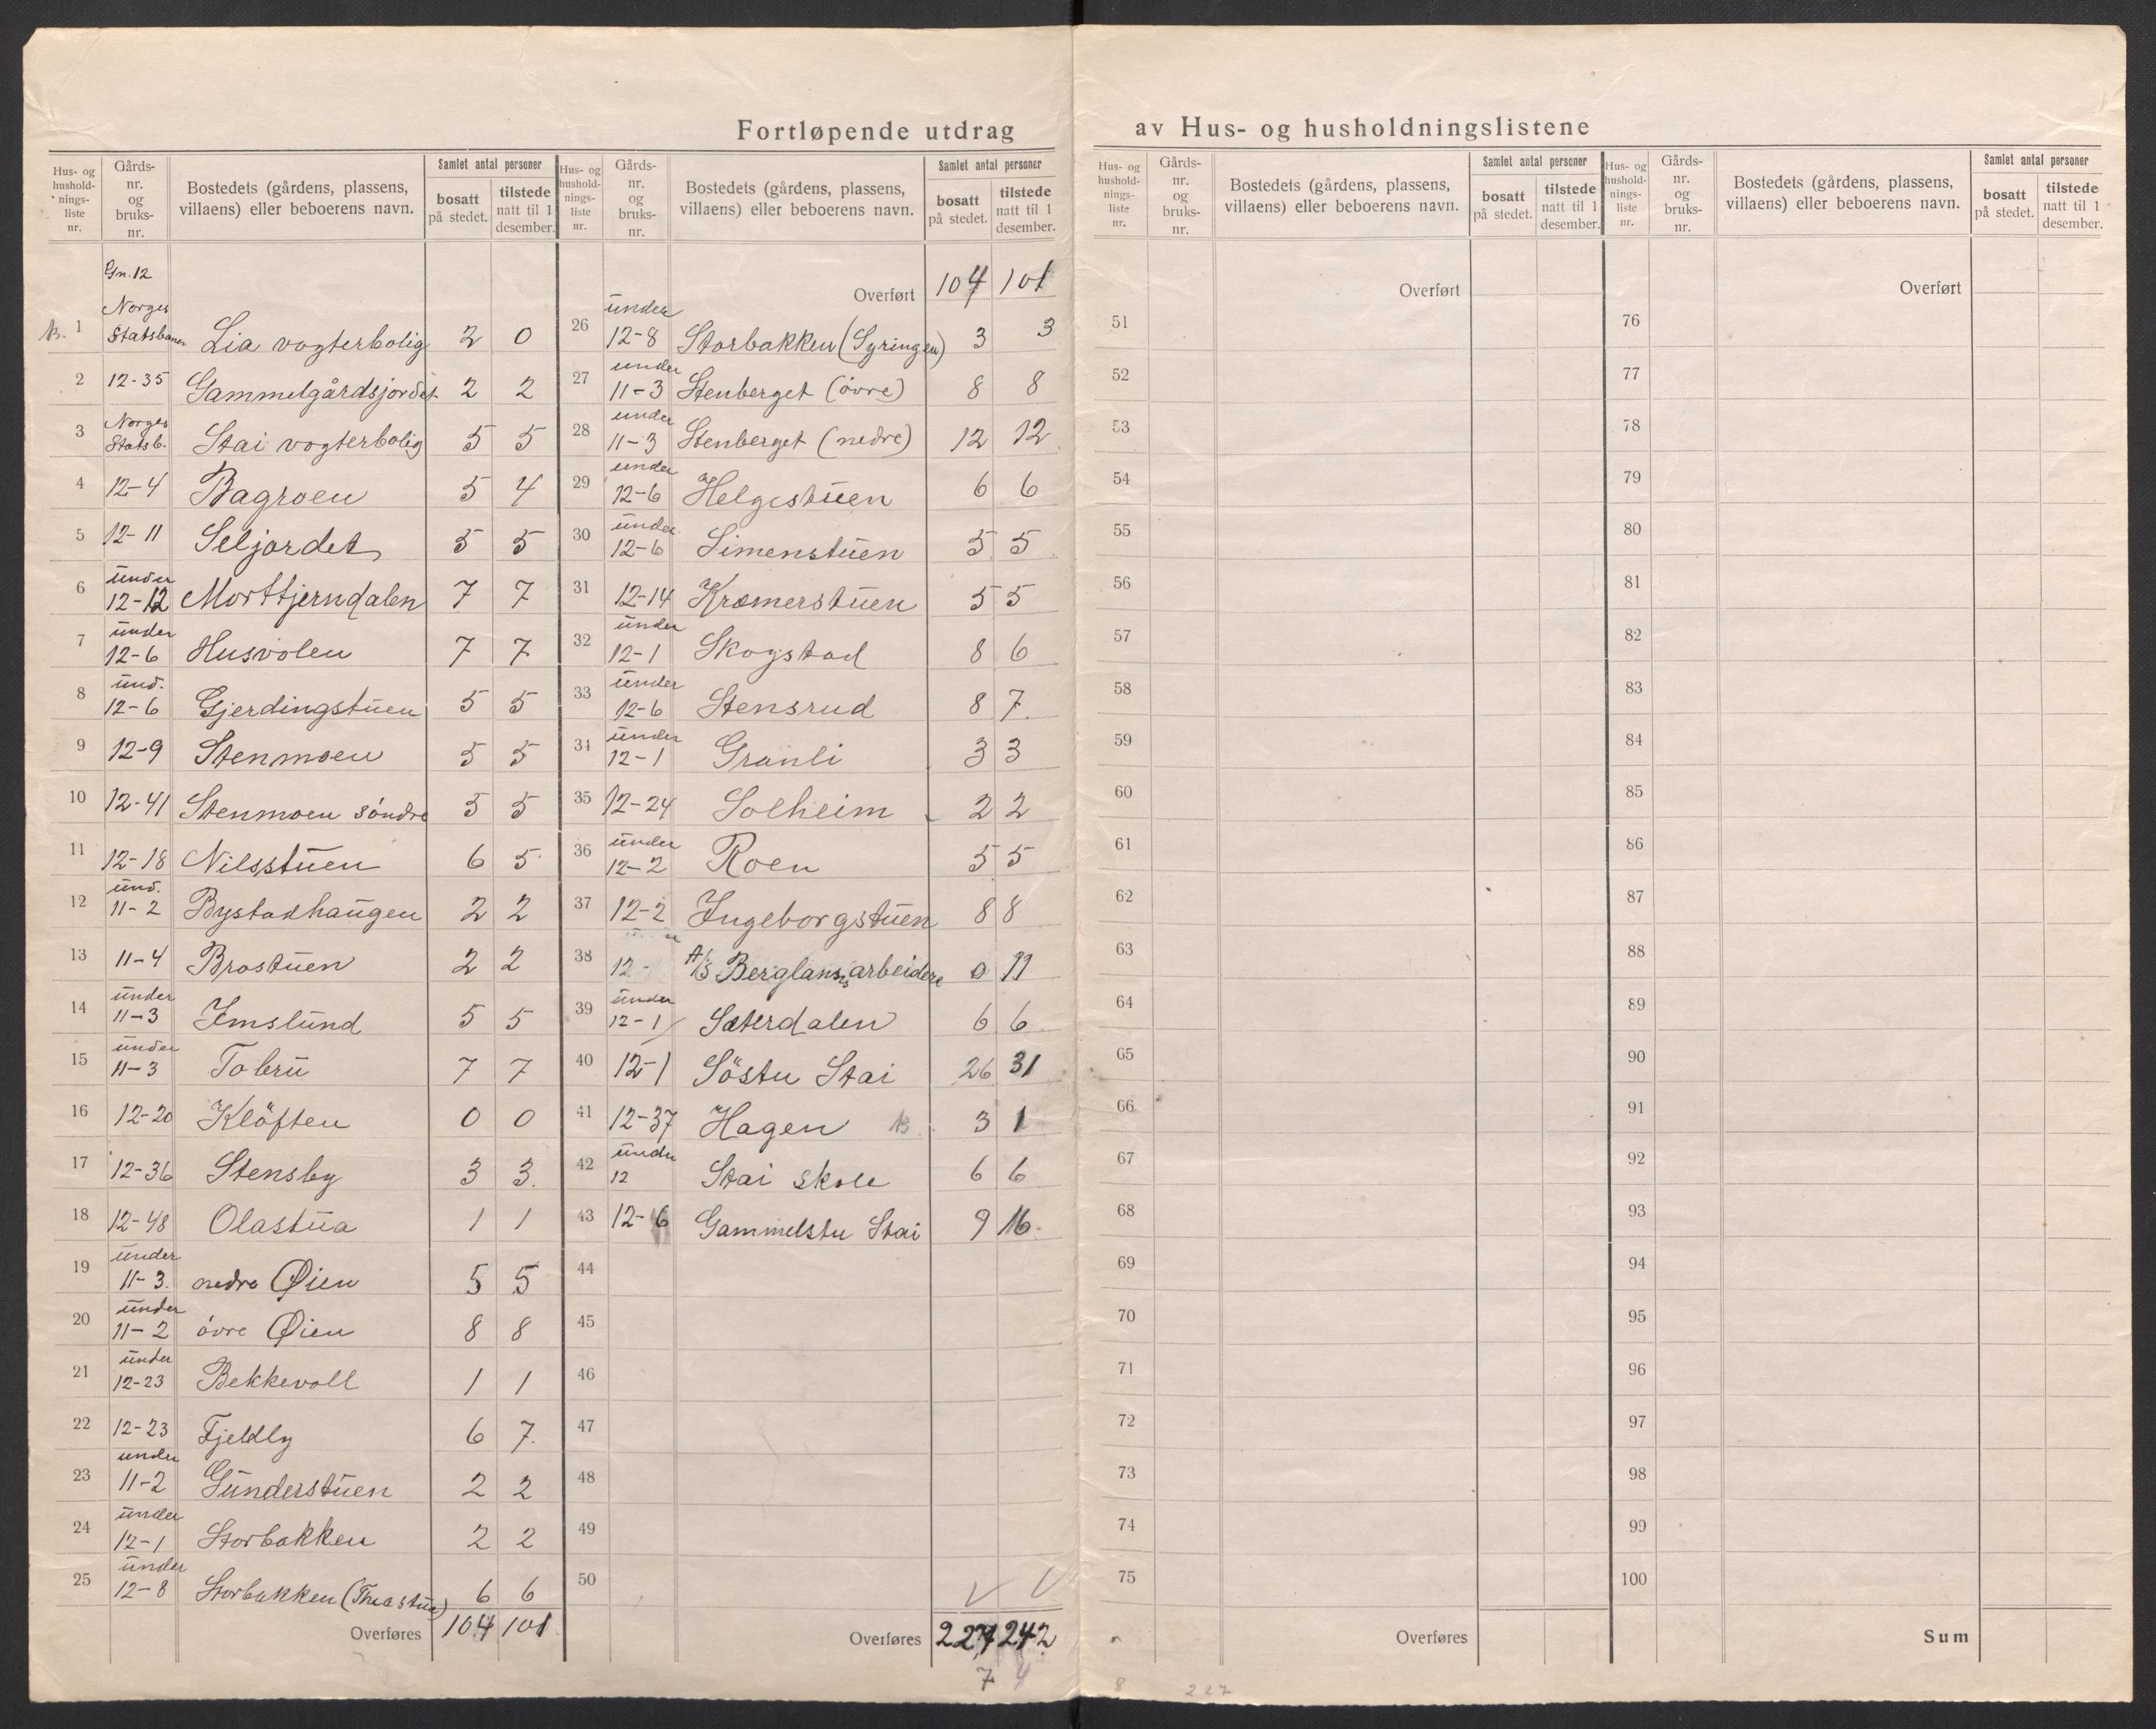 Fortløpende utdrag av Hus- og husholdningslistene
Hus- og hushold- nings- liste nr. Gårds- nr. og bruks- nr. Bostedets (gårdens, plassens, villaens) eller beboerens navn. Samlet antal personer bosatt på stedet. tilstede natt til 1 desember.
Gn. 12
1 Norges Statsbaner Lia vogterbolig 2 0
2 12-35 Gammelgårdsjordet 2 2
3 Norges Statsb. Stai vogterbolig 5 5
4 12-4 Bagroen 5 4
5 12-11 Seljordet 5 5
6 under 12-12 Morttjerndalen 7 7
7 under 12-6 Husvolen 7 7
8 und. 12-6 Gjerdingstuen 5 5
9 12-9 Stenmoen 5 5
10 12-41 Stenmoen söndre 5 5
11 12-18 Nilsstuen 6 5
12 und. 11-2 Bystadhaugen 2 2
13 11-4 Brostuen 2 2
14 under 11-3 Imslund 5 5
15 under 11-3 Tobru 7 7
16 12-20 Klöften 0 0
17 12-36 Stensby 3 3.
18 12-48 Olastua 1 1
19 under 11-3. nedre Øien 5 5
20 under 11-2 övre Øien 8 8
21 under 12-23 Bekkevoll 1 1
22 12-23 Fjeldly 6 7.
23 under 11-2 Gunderstuen 2 2
24 under 12-1 Storbakken 2 2
25 under 12-8 Storbakken (Theastua) 6 6
Overføres 104 101
Hus- og hushold- nings- liste nr. Gårds- nr. og bruks- nr. Bostedets (gårdens, plassens, villaens) eller beboerens navn. Samlet antal personer bosatt på stedet. tilstede natt til 1 desember.
Overført 104 101
26 under 12-8 Storbakken (Syringen) 3 3
27 under 11-3 Stenberget (övre) 8 8
28 under 11-3 Stenberget (nedre) 12 12
29 under 12-6 Helgestuen 6 6
30 under 12-6 Simenstuen 5 5
31 12-14 Kramerstuen 5 5
32 under 12-1 Skogstad 8 6
33 under 12-6 Stensrud 8 7.
34 under 12-1 Granli 3 3
35 12-24 Solheim 2 2
36 under 12-2 Roen 5 5
37 12-2 Ingeborgstuen 8 8
38 12- A/S Berglans arbeidere 0 11
39 under 12-1 Sæterdalen 6 6
40 12-1 Söstu Stai 26 31
41 12-37 Hagen 3 1
42 under 12 Stai skole 6 6
43 12-6 Gammelstu Stai 9 16.
44
45
46
47
48
49
50
Overføres 227 242
7 4
Hus- og hushold- nings- liste nr. Gårds- nr. og bruks- nr. Bostedets (gårdens, plassens, villaens) eller beboerens navn. Samlet antal personer bosatt på stedet. tilstede natt til 1 desember.
Overført
51
52
53
54
55
56
57
58
59
60
61
62
63
64
65
66
67
68
69
70
71
72
73
74
75
Overføres
8 227
Hus- og hushold- nings- liste nr. Gårds- nr. og bruks- nr. Bostedets (gårdens, plassens, villaens) eller beboerens navn. Samlet antal personer bosatt på stedet. tilstede natt til 1 desember.
Overført
76
77
78
79
80
81
82
83
84
85
86
87
88
89
90
91
92
93
94
95
96
97
98
99
100
Sum